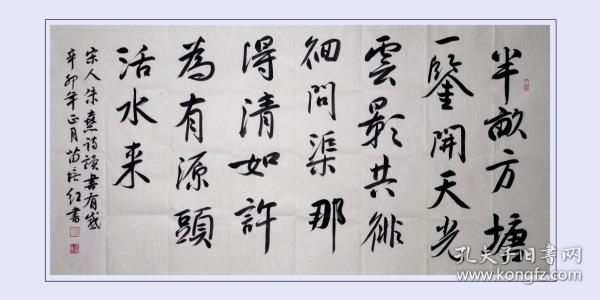 半畝方塘
一鑒開天光
雲影共徘
徊問渠那
得清如許
為有源頭
活水来
宋人朱熹詩讀書有感
辛卯年正月苗培红書
孔夫子旧书网
www.kongfz.com